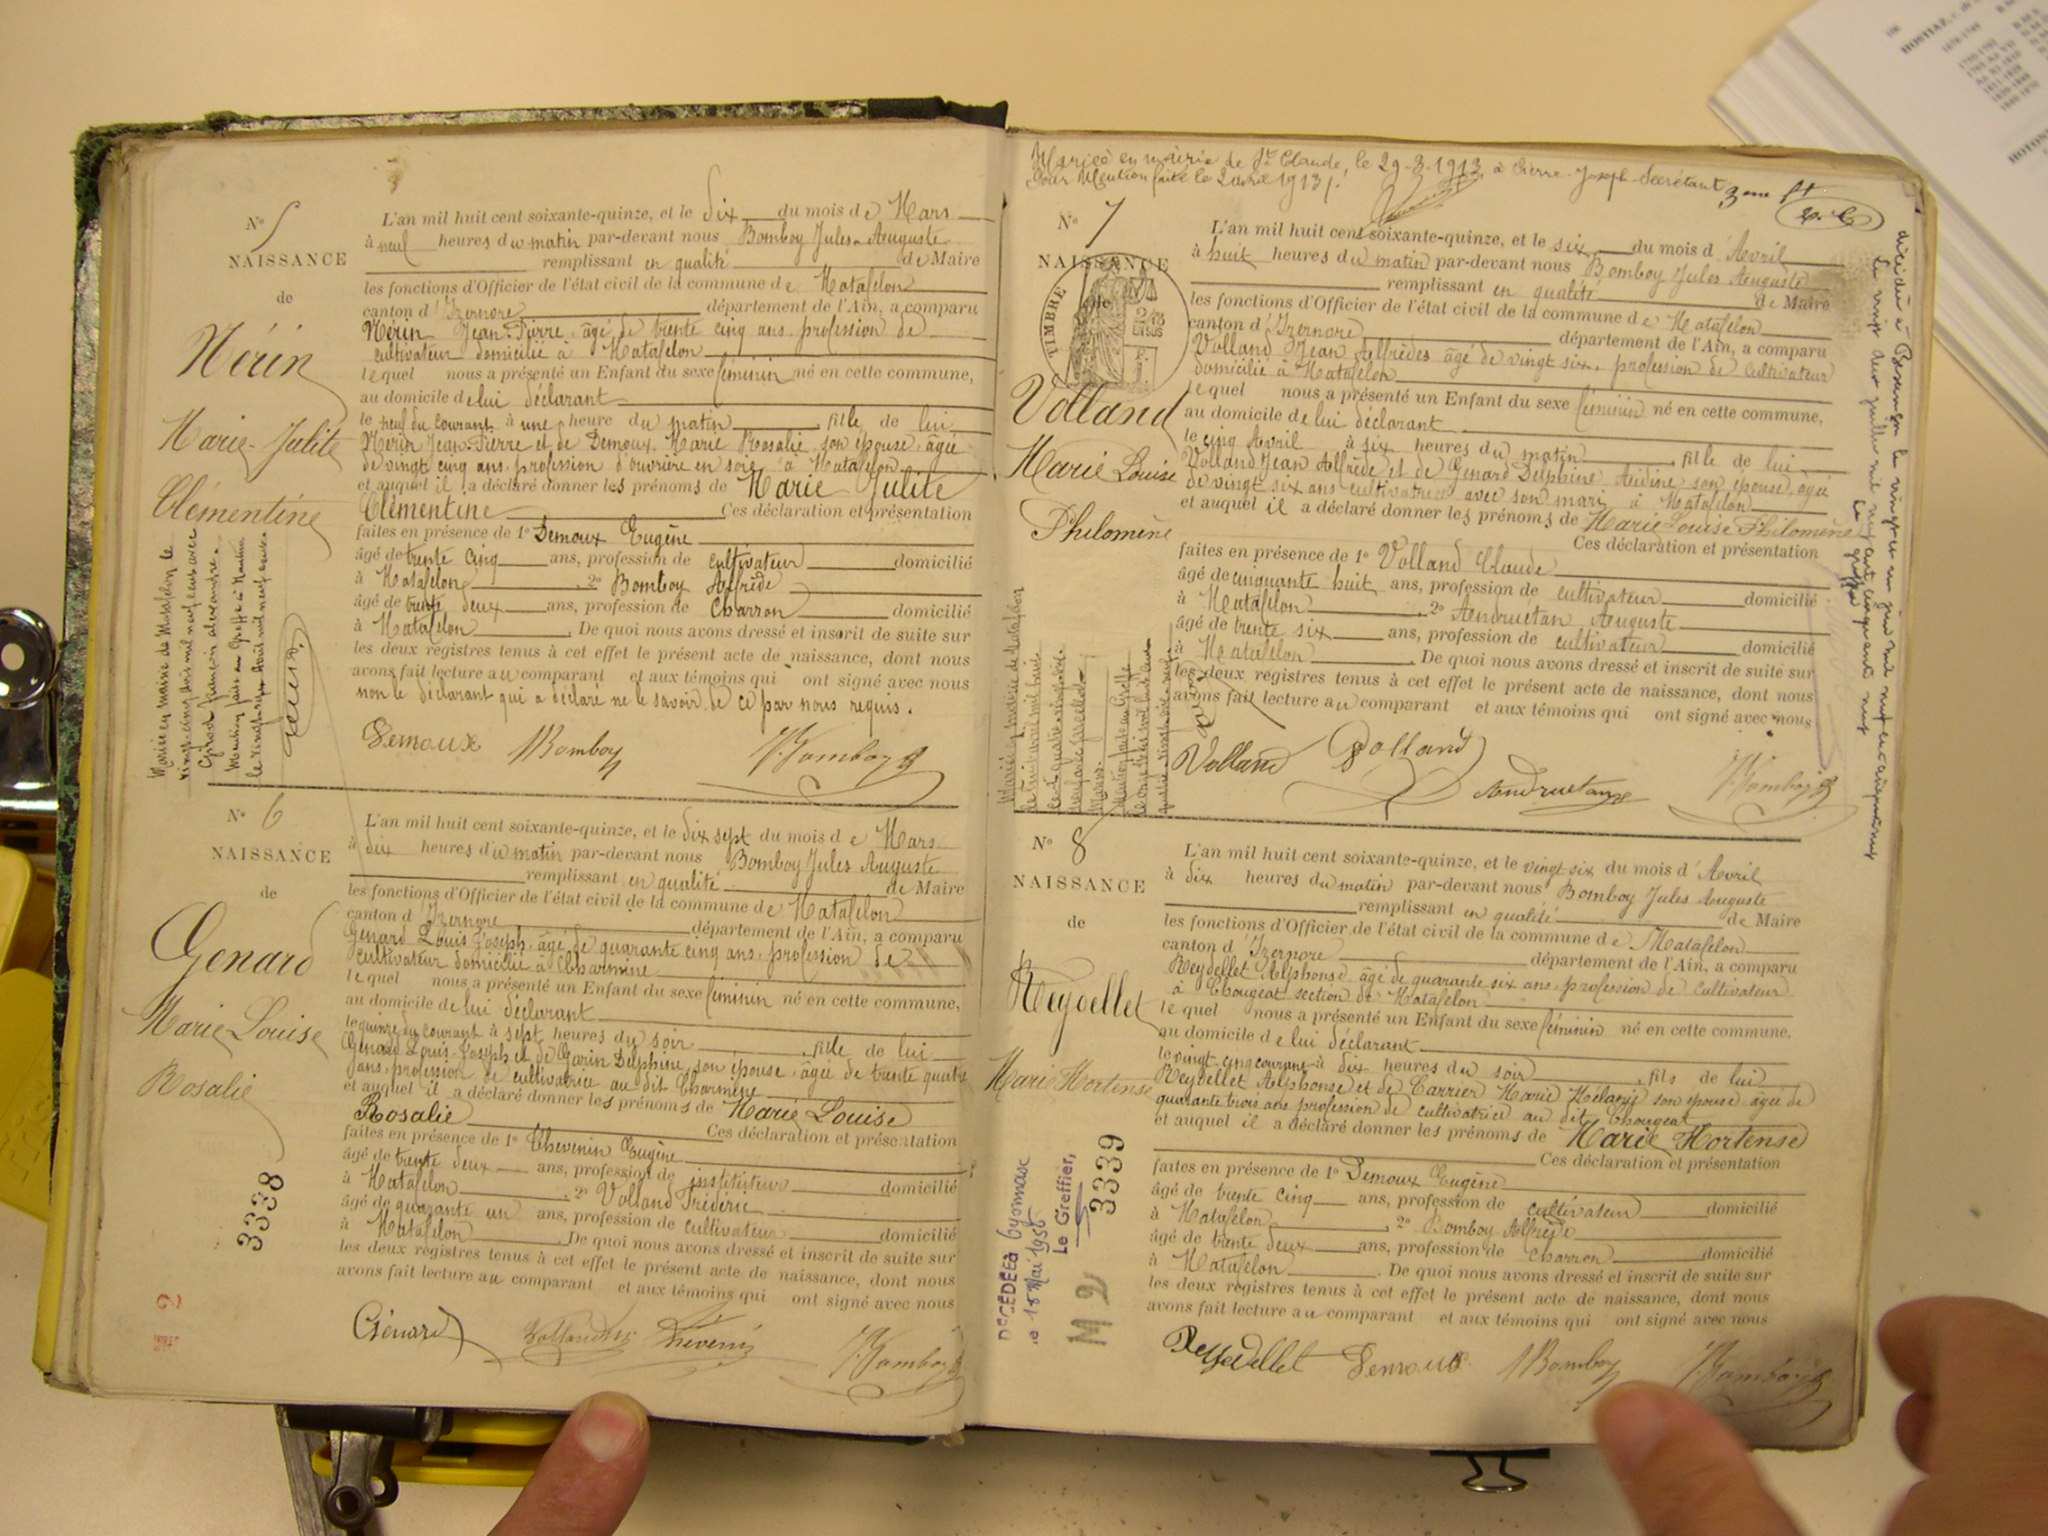 No 5
NAISSANCE
de
Nérin
Marie-Julite
Clémentine
L'an mil huit cent soixante-quinze, et le dix du mois de Mars
à neuf heures du matin par-devant nous Bomboy Jules Auguste
remplissant en qualité de Maire
les fonctions d'Officier de l'état civil de la commune de Matafelon
canton d'Izernore département de l'Ain, a comparu
Nérin Jean-Pierre, âgé de trente cinq ans, profession de
cultivateur domicilié à Matafelon
lequel nous a présenté un Enfant du sexe féminin né en cette commune,
au domicile de lui déclarant
le neuf du courant à une heure du matin, fille de lui
Nérin Jean-Pierre et de Demoux Marie Rosalie son épouse, âgée
de vingt cinq ans, profession d'ouvrière en soie à Matafelon
et auquel il a déclaré donner les prénoms de Marie Julite
Clémentine Ces déclaration et présentation
faites en présence de 1o Demoux Eugène
âgé de trente cinq ans, profession de cultivateur domicilié
à Matafelon, 2o Bomboy Alfrède
âgé de trente deux ans, profession de charron domicilié
à Matafelon. De quoi nous avons dressé et inscrit de suite sur
les deux registres tenus à cet effet le présent acte de naissance, dont nous
avons fait lecture au comparant et aux témoins qui ont signé avec nous
non le déclarant qui a déclaré ne le savoir de ce par nous requis.
Demoux ABomboy J. Bomboy
Mariée en mairie de Matafelon le
vingt cinq mil neuf cent avec
Girod françois alexandre
Mention faite au Greffe à Nantua
le vingt sept Avril mil neuf cent
No 6
NAISSANCE
de
Genard
Marie Louise
Rosalie
L'an mil huit cent soixante-quinze, et le dix sept du mois de Mars
à dix heures du matin par-devant nous Bomboy Jules Auguste
remplissant en qualité de Maire
les fonctions d'Officier de l'état civil de la commune de Matafelon
canton d'Izernore département de l'Ain, a comparu
Genard Louis Joseph, âgé de quarante cinq ans, profession de
cultivateur domicilié à Charmine
lequel nous a présenté un Enfant du sexe féminin né en cette commune,
au domicile de lui déclarant
le quinze du courant à sept heures du soir, fille de lui
Genard Louis-Joseph et de Garin Delphine, son épouse, âgée de trente quatre
ans, profession de cultivatrice au dit Charmine
et auquel il a déclaré donner les prénoms de Marie Louise
Rosalie Ces déclaration et présentation
faites en présence de 1o Thevenin Eugène
âgé de trente deux ans, profession de instituteur domicilié
à Matafelon, 2o Volland Frédéric
âgé de quarante un ans, profession de cultivateur domicilié
à Matafelon. De quoi nous avons dressé et inscrit de suite sur
les deux registres tenus à cet effet le présent acte de naissance, dont nous
avons fait lecture au comparant et aux témoins qui ont signé avec nous
Génard Volland Thevenin J. Bomboy
3338
Mariée en mairie de St Claude, le 29-3-1913, à Pierre-Joseph Secrétant
Pour Mention faite le 2 avril 1913
3eme
No 7
NAISSANCE
de
TIMBRE
Volland
Marie Louise
Philomène
L'an mil huit cent soixante-quinze, et le six du mois d'Avril
à huit heures du matin par-devant nous Bomboy Jules Auguste
remplissant en qualité de Maire
les fonctions d'Officier de l'état civil de la commune de Matafelon
canton d'Izernore département de l'Ain, a comparu
Volland Jean Alfrèdes âgé de vingt six, profession de cultivateur
domicilié à Matafelon
lequel nous a présenté un Enfant du sexe féminin né en cette commune,
au domicile de lui déclarant
le cinq Avril à six heures du matin, fille de lui
Volland Jean Alfrède et de Genard Delphine son épouse, âgée
de vingt six ans cultivatrice avec son mari à Matafelon
et auquel il a déclaré donner les prénoms de Marie Louise Philomène
Ces déclaration et présentation
faites en présence de 1o Volland Claude
âgé de cinquante huit ans, profession de cultivateur domicilié
à Matafelon, 2o Andruetan Auguste
âgé de trente six ans, profession de cultivateur domicilié
à Matafelon. De quoi nous avons dressé et inscrit de suite sur
les deux registres tenus à cet effet le présent acte de naissance, dont nous
avons fait lecture au comparant et aux témoins qui ont signé avec nous
Volland Volland Andruetan J. Bomboy
Mariée en mairie de Matafelon
décédée à Besançon le vingt et un juin mil neuf cent cinquante neuf
Le vingt deux juillet mil neuf cent cinquante neuf
Le greffier
No 8
NAISSANCE
de
Reydellet
Marie Hortense
L'an mil huit cent soixante-quinze, et le vingt six du mois d'Avril
à dix heures du matin par-devant nous Bomboy Jules Auguste
remplissant en qualité de Maire
les fonctions d'Officier de l'état civil de la commune de Matafelon
canton d'Izernore département de l'Ain, a comparu
Reydellet Alphonse âgé de quarante six ans, profession de cultivateur
à Chougeat section de Matafelon
lequel nous a présenté un Enfant du sexe féminin né en cette commune.
au domicile de lui déclarant
le vingt cinq courant à dix heures du soir, fils de lui
Reydellet Alphonse et de Carrier Marie Mélanie son épouse âgée de
quarante trois ans profession de cultivatrice au dit Chougeat
et auquel il a déclaré donner les prénoms de Marie Hortense
Ces déclaration et présentation
faites en présence de 1o Demoux Eugène
âgé de trente cinq ans, profession de cultivateur domicilié
à Matafelon, 2o Bomboy Alfrède
âgé de trente deux ans, profession de charron domicilié
à Matafelon. De quoi nous avons dressé et inscrit de suite sur
les deux registres tenus à cet effet le présent acte de naissance, dont nous
avons fait lecture au comparant et aux témoins qui ont signé avec nous
Reydellet Demoux ABomboy J. Bomboy
DECEDEE à Oyonnax
le 18 Mai 1956
Le Greffier,
3339
M 2
HOSTIAZ